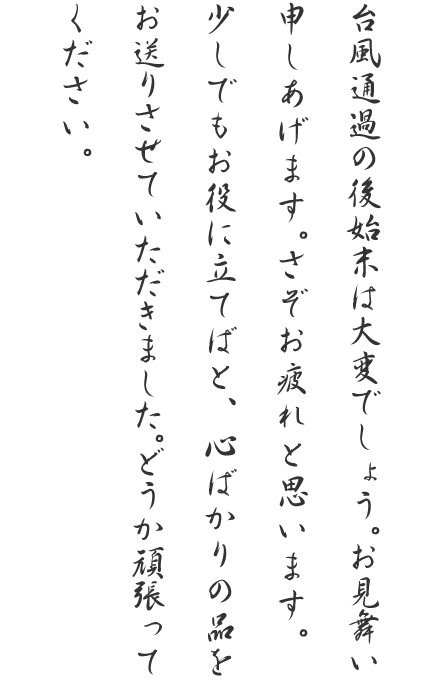 台風通過の後始末は大変でしょう。お見舞い
申しあげます。さぞお疲れと思います。
少しでもお役に立てばと、心ばかりの品を
お送りさせていただきました。どうか頑張って
ください。